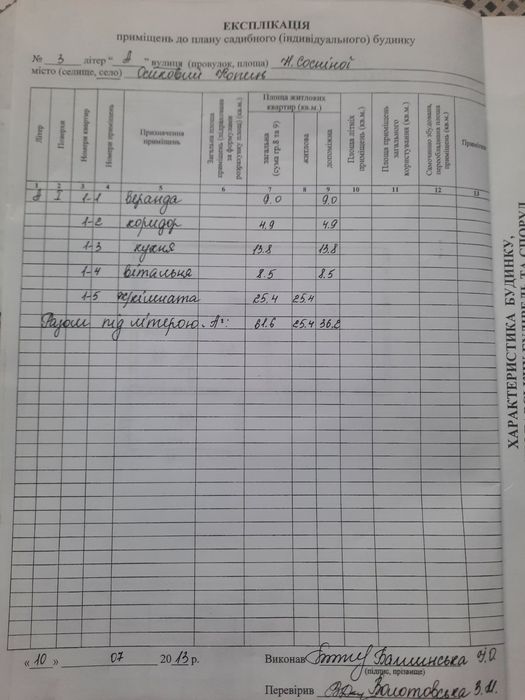 ЕКСПЛІКАЦІЯ
приміщень до плану садибного (індивідуального) будинку
№ 3 літер " А " вулиця (провулок, площа) Н. Сосніної
місто (селище, село) Осиковий Копин
Літер Поверхи Номери квартир Номери приміщень Призначення приміщень Загальна площа приміщень (підрахована за формулами розрахунку площ) (кв.м.) Площа житлових квартир (кв.м.) загальна (сума гр.8 та 9) житлова допоміжна Площа літніх приміщень (кв.м.) Площа приміщень загального користування (кв.м.) Самочинно збудована, переобладнана площа приміщень (кв.м.) Примітки
1 2 3 4 5 6 7 8 9 10 11 12 13
А І 1-1 веранда 9.0 9.0
1-2 коридор 4.9 4.9
1-3 кухня 13.8 13.8
1-4 вітальня 8.5 8.5
1-5 жкімната 25.4 25.4
Разом під літерою „А": 61.6 25.4 36.2
ХАРАКТЕРИСТИКА БУДИНКУ,
« 10 » 07 2013 р. Виконав Н.О.
(підпис, прізвище)
Перевірив Золотовська З.М.